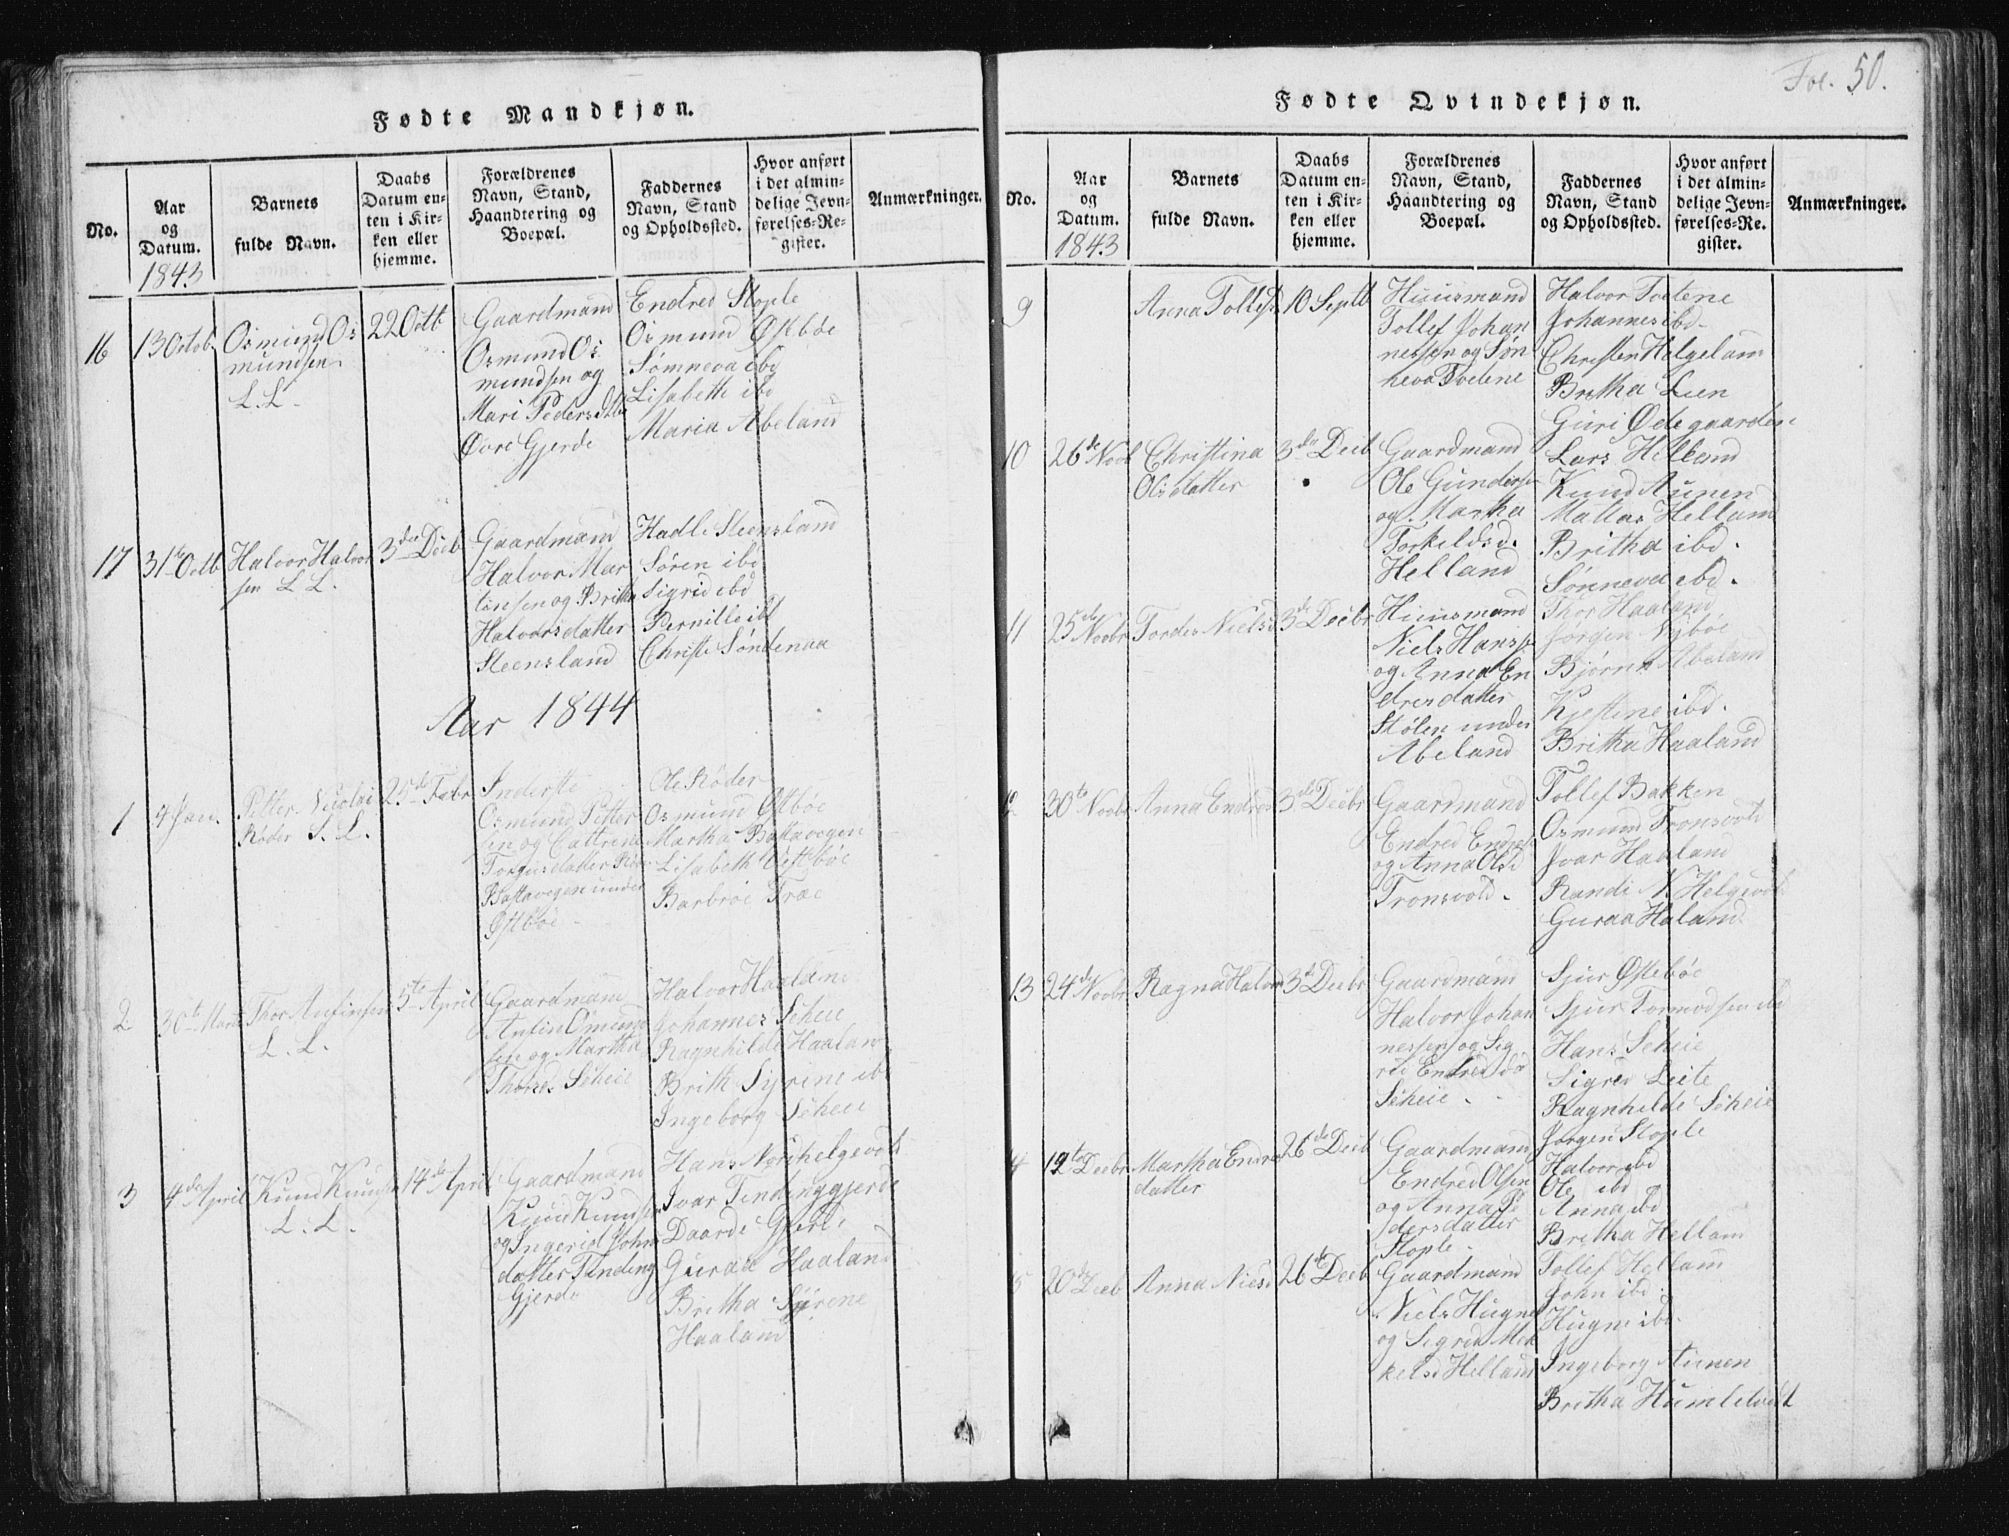 Fol. 50.
Fødte Mandkjøn.
No.
Aar
og
Datum.
1843
Barnets
fulde Navn.
Daabs
Datum en-
ten i Kir-
ken eller
hjemme.
Forældrenes
Navn, Stand,
Haandtering og
Boepæl.
Faddernes
Navn, Stand
og Opholdssted.
Hvor anført
i det almin-
delige Jevn-
førelses-Re-
gister.
Anmærkninger.
16
13 Octob.
Osmund Os
mundsen
L. L.
22 Octb
Gaardmand
Osmund Os
mundsen og
Mari Pedersdtr
Øvre Gjerde
Endred Stople
Osmund Østbøe
Sømneva ibd
Lisabette ibd
Maria Abeland
17
31te Octb
Halvor Halvor
sen L. L.
3die Decb
Gaardmand
Halvor Mar
tinsen og Britha
Halvorsdatter
Steensland
Hadle Steensland
Søren ibd
Sigrid ibd
Pernille ibd
Christi Søndenaa
Aar 1844
1
4 Jan.
Petter Nicolai
Røder S. L.
25de Febr
Inderste
Osmund Petter
sen og Cattrine
Torgersdatter
Battavegen under
Østbøe
Ole Røder
Osmund Østbøe
Martha Battavegen
Lisabeth Østbøe
Barbroe Træe
2
30te Marts
Thor Anfinsen
L. L.
5te April
Gaardmand
Anfin Omund
sen og Martha
Thorsd Scheie
Halvor Haaland
Johannes Scheie
Ragnhilde Haaland
Brith Syrine ibd
Ingeborg Scheie
3
4de April
Knud Knudsen
L. L.
14de April
Gaardmand
Knud Knudsen
og Ingerid John
datter Tinding
Gjerde
Hans Nordhelgevold
Ivar Tindinggjerde
Daarde Gjerde
Guraa Haaland
Britha Syrene
Haaland
Fødte Qvindekjøn.
No.
Aar
og
Datum.
1843
Barnets
fulde Navn.
Daabs
Datum en-
ten i Kir-
ken eller
hjemme.
Forældrenes
Navn, Stand,
Haandtering og
Boepæl.
Faddernes
Navn, Stand
og Opholdssted.
Hvor anført
i det almin-
delige Jevn-
førelses-Re-
gister.
Anmærkninger.
9
Anna Tollefsd
10 Septb
Huusmand
Tollef Johan
nessen og Søn
neva Tvetene
Halvor Tvetene
Johannes ibd
Christen Helgeland
Britha Lien
Guri Ødegaarden
10
26de Novb
Christina
Olsdatter
3die Decb
Gaardmand
Ole Gundersen
og Martha
Torkeldsd.
Helland
Lars Helland
Knud Aunen
Mattias Helland
Britha ibd.
Sønneva ibd.
11
25de Novbr
Tordes Nielsd
3die Decbr
Huusmand
Niels Hanssen
og Anna En
dresdatter
Stølen under
Abeland
Thor Haaland
Jørgen Nybøe
Bjørne Abeland
Kjestine ibd.
Britha Haaland
12
30te Novbr
Anna Endresd
3die Decbr
Gaardmand
Endred Endresen
og Anna Olsd
Tronsvold.
Tollef Bakken
Osmund Tronsvold
Ivar Haaland
Randi N. Helgevold
Guraa Haland
13
24de Novbr
Ragna Halvorsd
3die Decbr
Gaardmand
Halvor Johan
nessen og Sig
rid Endredsd
Scheie.
Sjur Østebøe
Sjur Tormodsen ibd
Hans Scheie
Sigred Leite
Ragnhilde Scheie
14
12te Decbr
Martha Endre
datter
26de Decb
Gaardmand
Endred Olsen
og Anna Pe
dersdatter
Stople.
Jørgen Stople
Halvor ibd
Ole ibd
Anna ibd
Britha Helland
15
20de Decb
Anna Nielsd
26de Decb
Gaardmand
Niels Hugne
og Sigrid Mik
kelsd Helland
Tollef Helland
John ibd.
Hugne ibd.
Ingeborg Aunen
Britha Humletvedt